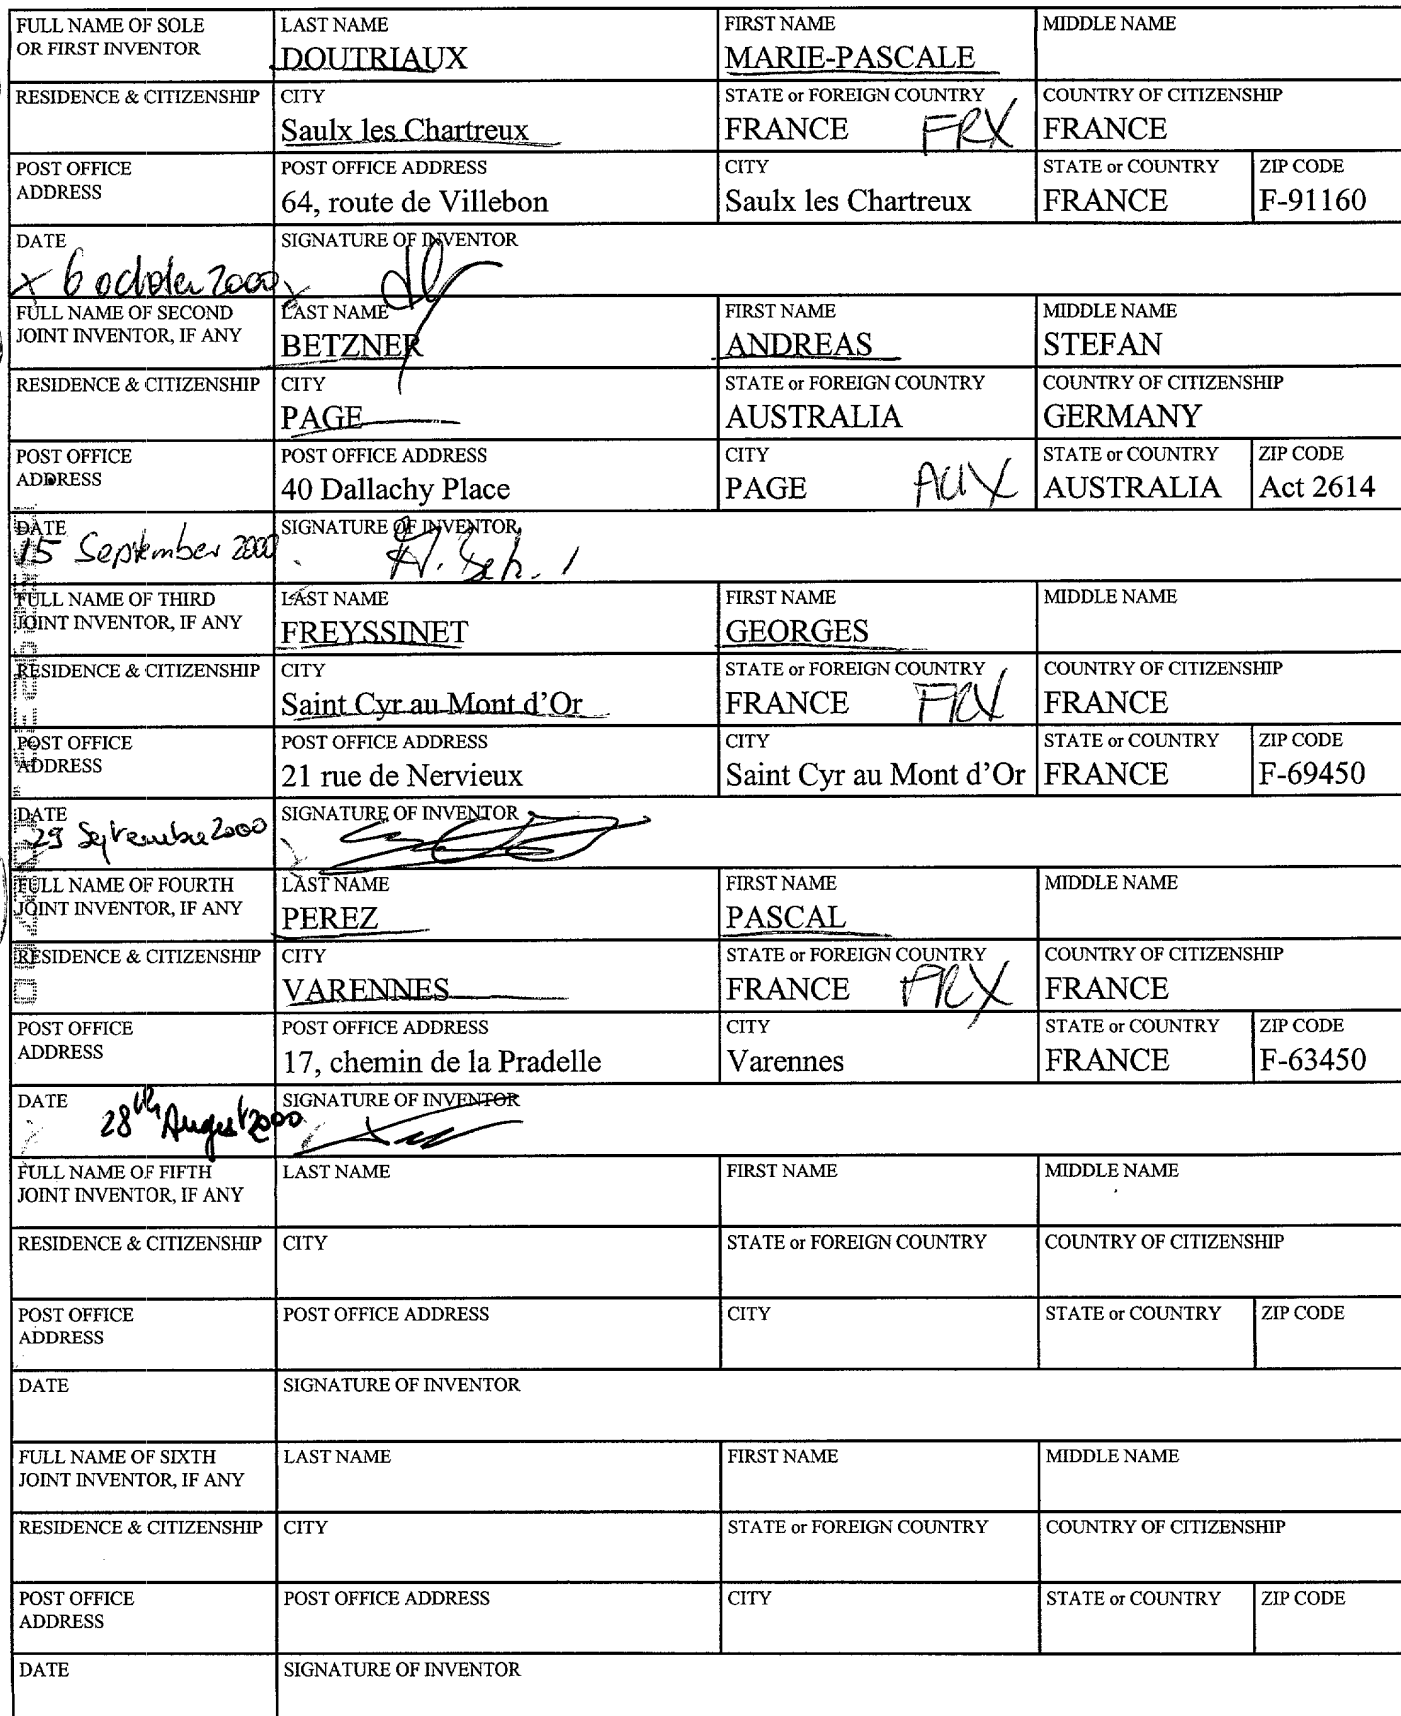 FULL NAME OF SOLE OR FIRST INVENTOR
LAST NAME
DOUTRIAUX
FIRST NAME
MARIE-PASCALE
MIDDLE NAME
RESIDENCE & CITIZENSHIP
CITY
Saulx les Chartreux
STATE or FOREIGN COUNTRY
FRANCE FRX
COUNTRY OF CITIZENSHIP
FRANCE
POST OFFICE ADDRESS
POST OFFICE ADDRESS
64, route de Villebon
CITY
Saulx les Chartreux
STATE or COUNTRY
FRANCE
ZIP CODE
F-91160
DATE
x 6 october 2000
SIGNATURE OF INVENTOR
FULL NAME OF SECOND JOINT INVENTOR, IF ANY
LAST NAME
BETZNER
FIRST NAME
ANDREAS
MIDDLE NAME
STEFAN
RESIDENCE & CITIZENSHIP
CITY
PAGE
STATE or FOREIGN COUNTRY
AUSTRALIA
COUNTRY OF CITIZENSHIP
GERMANY
POST OFFICE ADDRESS
POST OFFICE ADDRESS
40 Dallachy Place
CITY
PAGE AUX
STATE or COUNTRY
AUSTRALIA
ZIP CODE
Act 2614
DATE
15 September 2000
SIGNATURE OF INVENTOR
FULL NAME OF THIRD JOINT INVENTOR, IF ANY
LAST NAME
FREYSSINET
FIRST NAME
GEORGES
MIDDLE NAME
RESIDENCE & CITIZENSHIP
CITY
Saint Cyr au Mont d'Or
STATE or FOREIGN COUNTRY
FRANCE FRX
COUNTRY OF CITIZENSHIP
FRANCE
POST OFFICE ADDRESS
POST OFFICE ADDRESS
21 rue de Nervieux
CITY
Saint Cyr au Mont d'Or
STATE or COUNTRY
FRANCE
ZIP CODE
F-69450
DATE
29 Septembre 2000
SIGNATURE OF INVENTOR
FULL NAME OF FOURTH JOINT INVENTOR, IF ANY
LAST NAME
PEREZ
FIRST NAME
PASCAL
MIDDLE NAME
RESIDENCE & CITIZENSHIP
CITY
VARENNES
STATE or FOREIGN COUNTRY
FRANCE FRX
COUNTRY OF CITIZENSHIP
FRANCE
POST OFFICE ADDRESS
POST OFFICE ADDRESS
17, chemin de la Pradelle
CITY
Varennes
STATE or COUNTRY
FRANCE
ZIP CODE
F-63450
DATE
28th August 2000
SIGNATURE OF INVENTOR
FULL NAME OF FIFTH JOINT INVENTOR, IF ANY
LAST NAME
FIRST NAME
MIDDLE NAME
RESIDENCE & CITIZENSHIP
CITY
STATE or FOREIGN COUNTRY
COUNTRY OF CITIZENSHIP
POST OFFICE ADDRESS
POST OFFICE ADDRESS
CITY
STATE or COUNTRY
ZIP CODE
DATE
SIGNATURE OF INVENTOR
FULL NAME OF SIXTH JOINT INVENTOR, IF ANY
LAST NAME
FIRST NAME
MIDDLE NAME
RESIDENCE & CITIZENSHIP
CITY
STATE or FOREIGN COUNTRY
COUNTRY OF CITIZENSHIP
POST OFFICE ADDRESS
POST OFFICE ADDRESS
CITY
STATE or COUNTRY
ZIP CODE
DATE
SIGNATURE OF INVENTOR